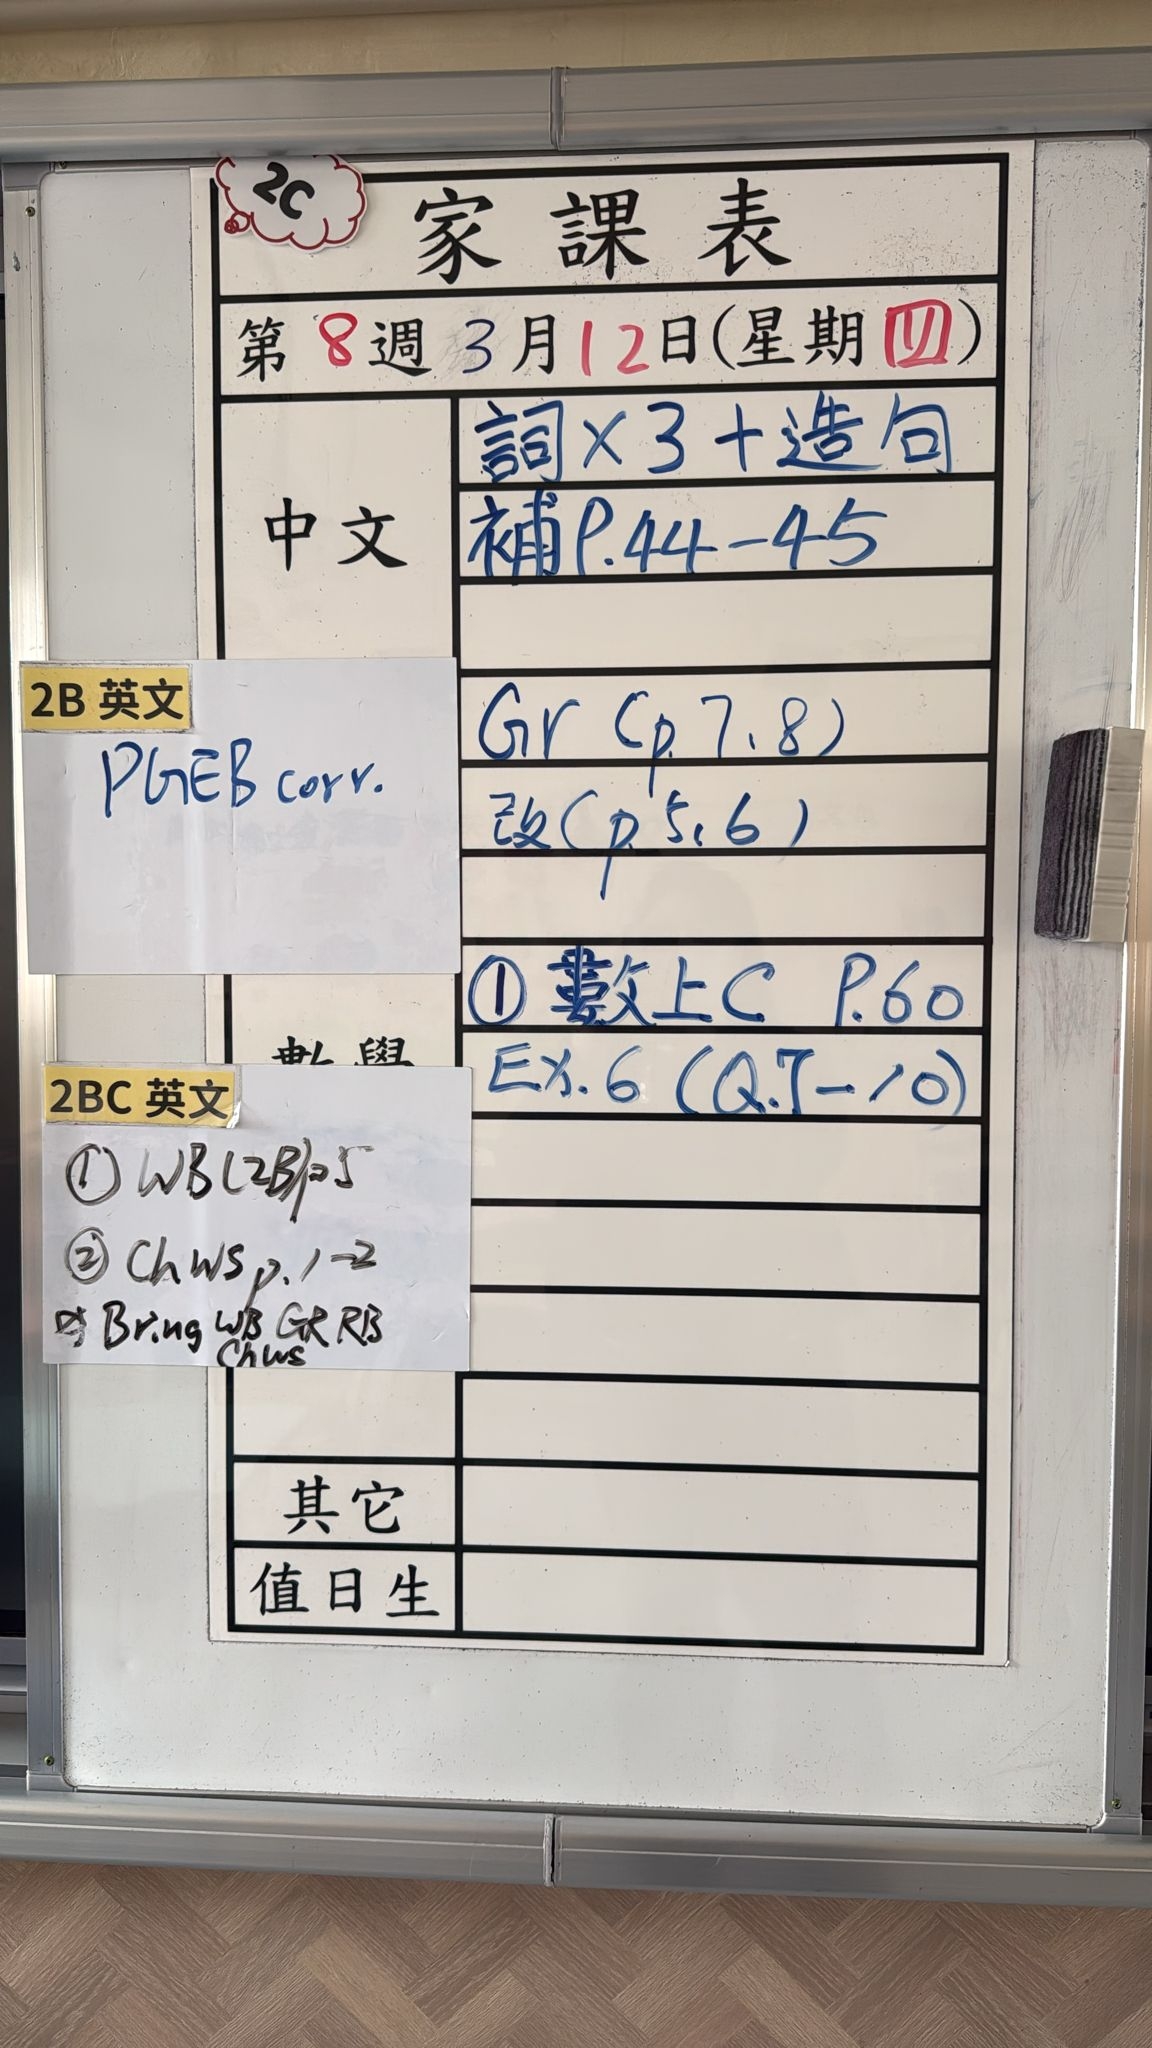 2C
家課表
第8週3月12日(星期四)
中文
詞×3+造句
補P.44-45
2B 英文
PGEB corr.
Gr (p.7、8)
改(p.5、6)
數學
① 數上C P.60
Ex.6 (Q.7-10)
2BC 英文
① WB(2B)p.5
② ChWS p.1-2
Bring WB GR RB
ChWS
其它
值日生